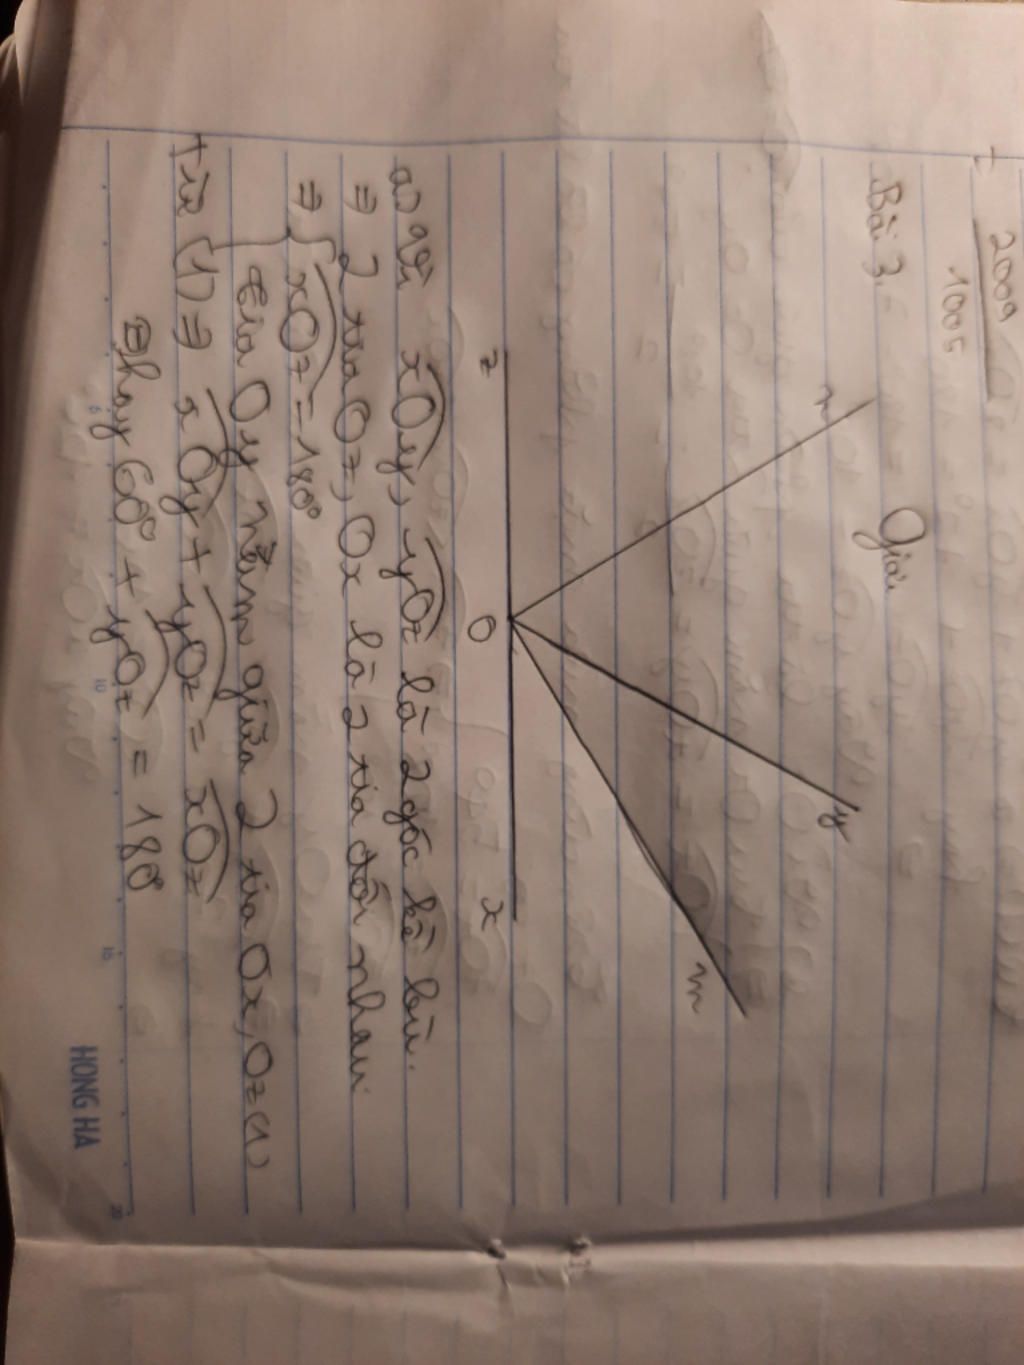 2009
1005
Bài 3.
Giải
n
y
m
z
O
x
a) Vì xOy, yOz là 2 góc kề bù.
⇒ 2 tia Oz, Ox là 2 tia đối nhau
⇒ { xOz = 180°
tia Oy nằm giữa 2 tia Ox, Oz (1)
Từ (1) ⇒ xOy + yOz = xOz
hay 60° + yOz = 180°
HONG HA
5
10
15
20